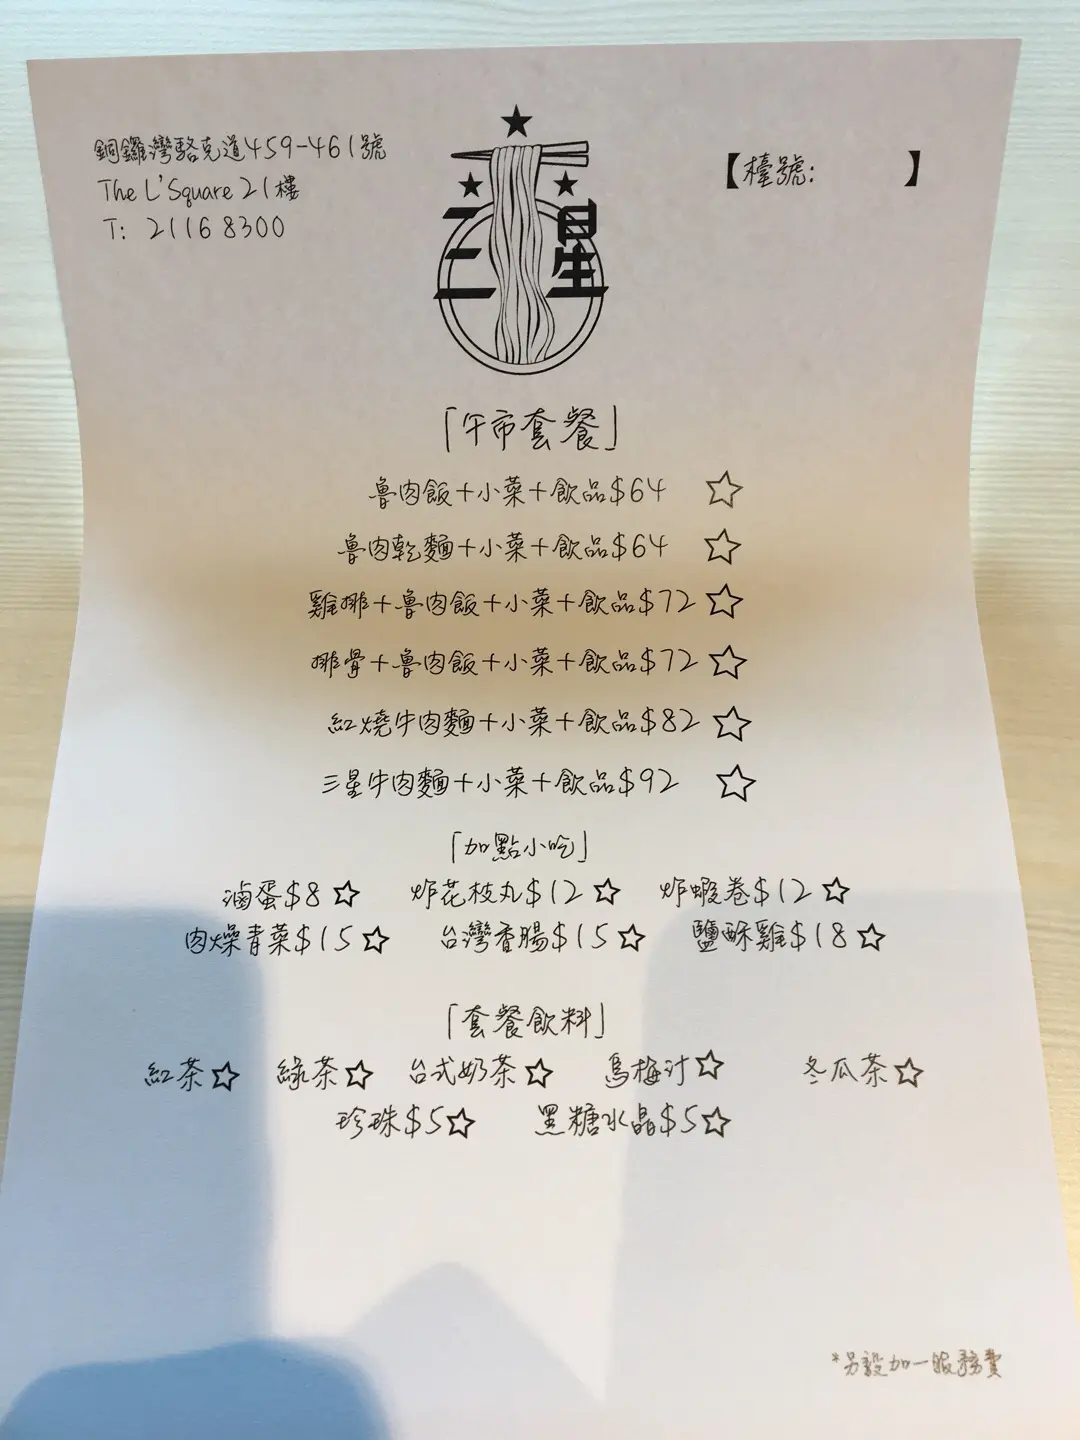 銅鑼灣駱克道459-461號
The L'Square 21樓
T: 2116 8300
【檯號: 】
三星
「午市套餐」
魯肉飯+小菜+飲品$64 ☆
魯肉乾麵+小菜+飲品$64 ☆
雞排+魯肉飯+小菜+飲品$72 ☆
排骨+魯肉飯+小菜+飲品$72 ☆
紅燒牛肉麵+小菜+飲品$82 ☆
三星牛肉麵+小菜+飲品$92 ☆
「加點小吃」
滷蛋$8 ☆ 炸花枝丸$12 ☆ 炸蝦卷$12 ☆
肉燥青菜$15 ☆ 台灣香腸$15 ☆ 鹽酥雞$18 ☆
「套餐飲料」
紅茶☆ 綠茶☆ 台式奶茶☆ 烏梅汁☆ 冬瓜茶☆
珍珠$5☆ 黑糖水晶$5☆
*另設加一服務費